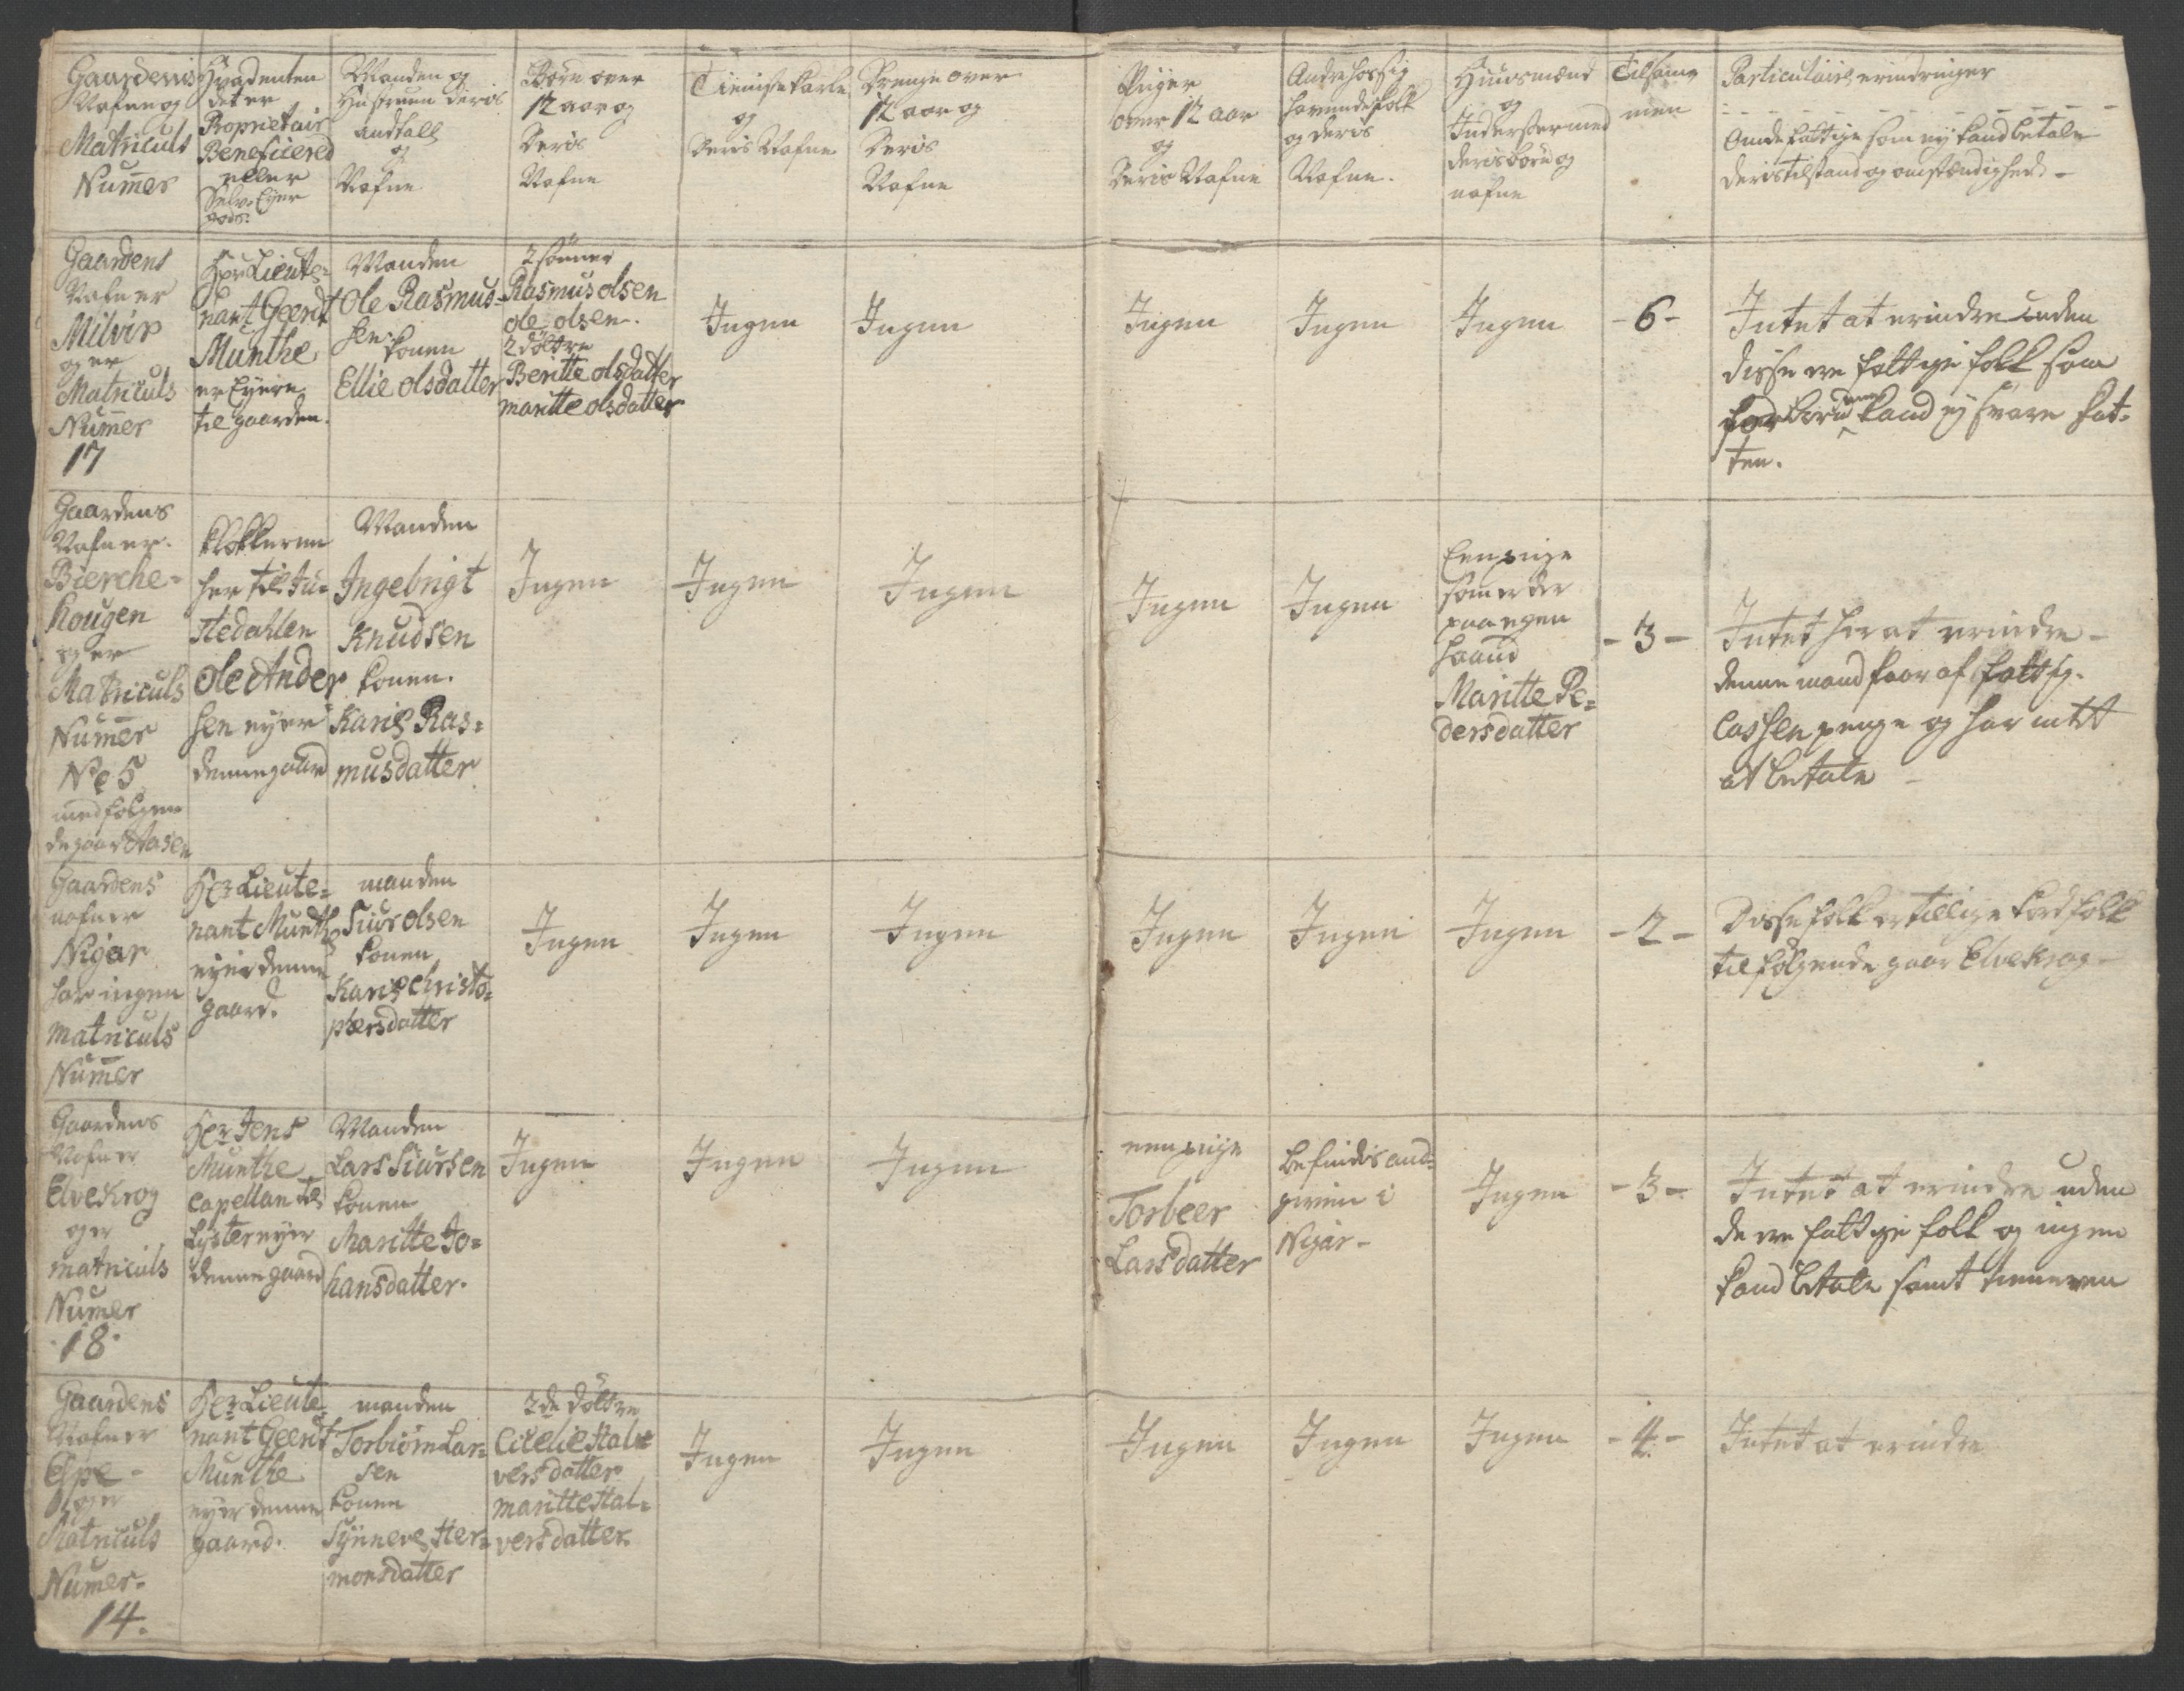 Gaardenis
Nafne og
Matriculs
Numer
Hvadenten
det er
Proprietair
Beneficered
eller
Selv-Eyer
gods.
Manden og
Hustruen deris
andtall
og
Nafne
Børn over
12 aar og
Deris
Nafne
Tieniste karle
og
Deris Nafne
Drenge over
12 aar og
Deris
Nafne
Piiger
over 12 aar
og
Deris Nafne
Andre hos sig
havende folk
og deris
Nafne.
Huusmænd
og
Inderster med
deris børn og
nafne
Tilsam-
men
Particulaire erindringer
Om de fattige som ey kand betale
deris tilstand og omstændighed -
Gaardens
Nafn er
Milvir
og er
Matriculs
Numer
17
Her Lieute=
nant Geerdt
Munthe
er Eyere
til gaarden.
Manden
Ole Rasmus=
sen
konen
Ellie olsdatter
2 sønner
Rasmus olsen
ole olsen.
2 døttre
Beritte olsdatter
maritte olsdatter
Ingen
Ingen
Ingen
Ingen
Ingen
- 6 -
Intet at erindre uden
disse ere fattige folk som
for børnene kand ey svare skat=
ten.
Gaardens
Nafn er.
Bierche=
Hougen
og er
Matriculs
Numer
No 5
med følgen
de gaar Aasen
klokkeren
her til Ju=
stedahlen
Ole Ander
sen eyer
denne gaard
Manden
Ingebrigt
Knudsen
konen.
Karis Ras=
musdatter
Ingen
Ingen
Ingen
Ingen
Ingen
Een piige
som er der
paa egen
haand
Maritte Pe=
dersdatter
- 3 -
Intet her at erindre -
denne mand faar af fattig-
Cassen penge og har intet
at betale -
Gaardens
nafn er
Nigar
har ingen
matriculs
Numer
Her Lieute=
nant Munthe
eyer denne
gaard.
manden
Siur olsen
konen
Karis Christo=
phersdatter
Ingen
Ingen
Ingen
Ingen
Ingen
Ingen
- 2 -
Disse folk er tillige kaad folk
til følgende gaar Elvekrog -
Gaardens
Nafn er
Elvekrog
og er
matriculs
Numer
18.
Her Jens
Munthe
Capellan til
Lyster eyer
denne gaard
Manden
Lars Siursen
konen
Maritte Jo=
hansdatter.
Ingen
Ingen
Ingen
een piige
Torbeer
Larsdatter
befindes and=
given i
Nigar -
Ingen
- 3 -
Intet at erindre uden
de ere fattige folk og ingen
kand betale samt
Gaardens
Nafn er
Espe -
og er
Matriculs
Numer.
14.
Her Lieute=
nant Geerdt
Munthe
eyer denne
gaard.
manden
Torbiørn Lar=
sen
konen
Synneve Her=
monsdatter
2de døttre
Cicelie Hal=
versdatter
maritte Hal=
versdatter.
Ingen
Ingen
Ingen
Ingen
Ingen
- 4 -
Intet at erindre